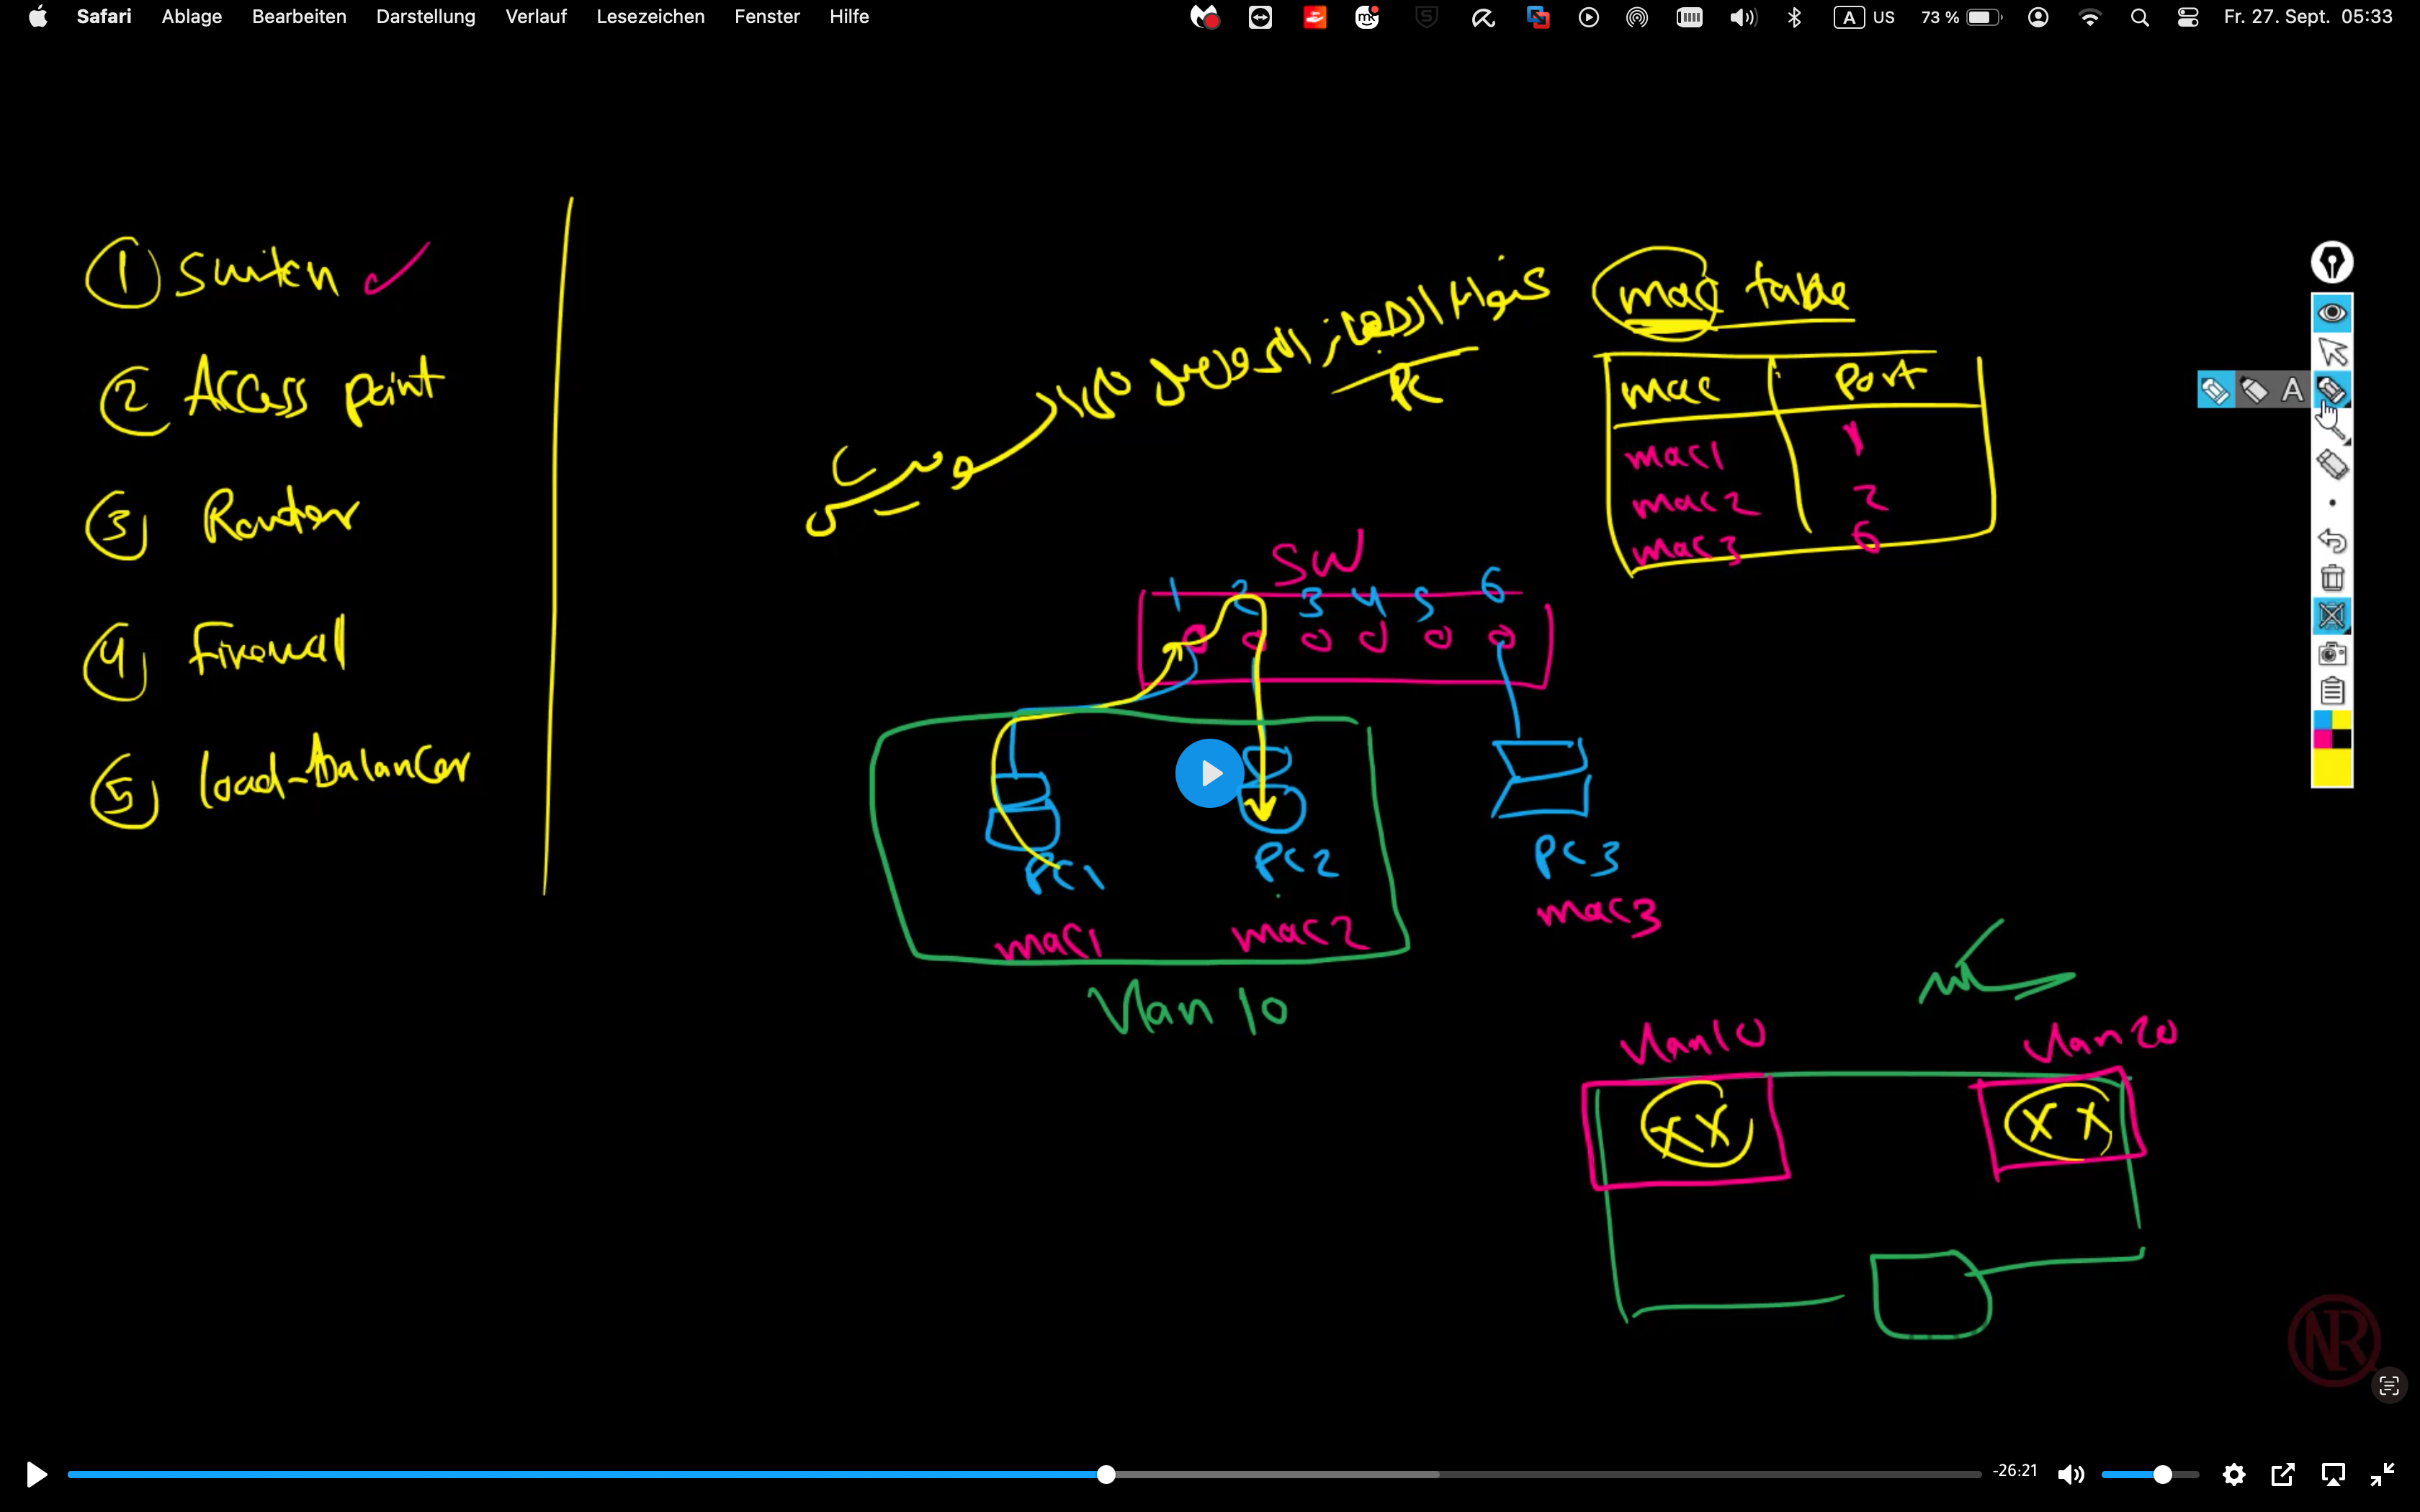 Safari Ablage Bearbeiten Darstellung Verlauf Lesezeichen Fenster Hilfe
A US 73 % Fr. 27. Sept. 05:33
1 Switch
2 Access point
3 Router
4 Firewall
5 Load-balancer
mac table
عنوان الجهاز
PC
mac Port
mac1 1
mac2 2
mac3 6
SW
1 2 3 4 5 6
PC1
PC2
PC3
mac1
mac2
mac3
Vlan 10
Vlan10
Vlan20
XX
XX
A
NR
-26:21